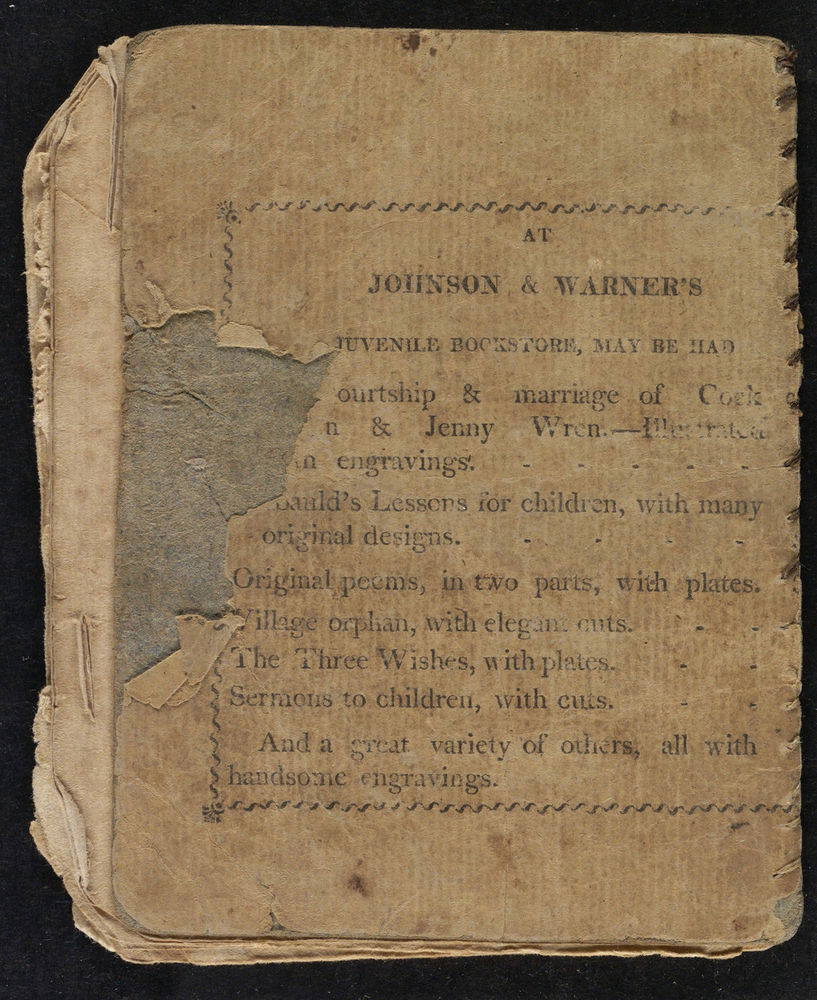 AT
JOHNSON & WARNER'S
JUVENILE BOOKSTORE, MAY BE HAD
ourtship & marriage of Cock
n & Jenny Wren.—Illustrated
engravings. - - - - -
bauld's Lessons for children, with many
original designs. - - - -
Original poems, in two parts, with plates.
Village orphan, with elegant cuts. - -
The Three Wishes, with plates. - -
Sermons to children, with cuts. - -
And a great variety of others, all with
handsome engravings.